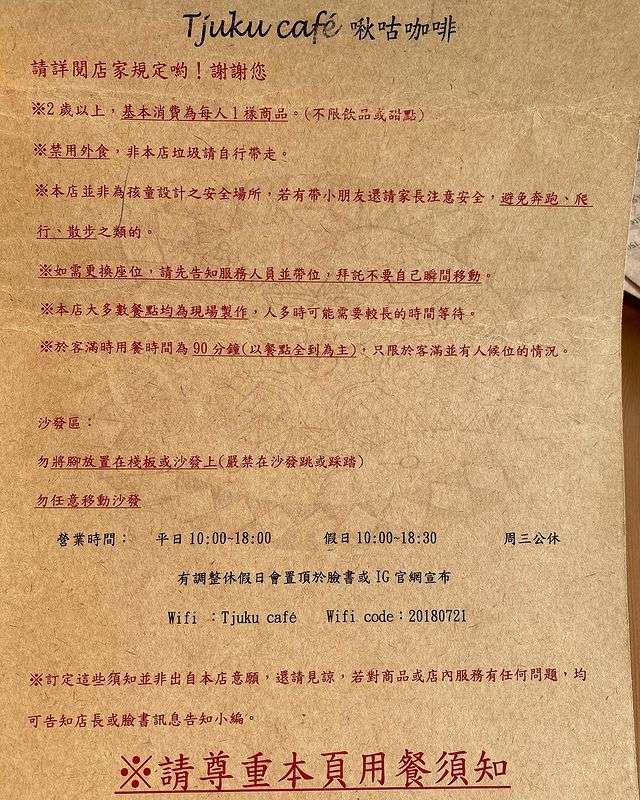 Tjuku café 啾咕咖啡
請詳閱店家規定喲！謝謝您
※2 歲以上，基本消費為每人1樣商品。(不限飲品或甜點)
※禁用外食，非本店垃圾請自行帶走。
※本店並非為孩童設計之安全場所，若有帶小朋友還請家長注意安全，避免奔跑、爬
行、散步之類的。
※如需更換座位，請先告知服務人員並帶位，拜託不要自己瞬間移動。
※本店大多數餐點均為現場製作，人多時可能需要較長的時間等待。
※於客滿時用餐時間為 90 分鐘(以餐點全到為主)，只限於客滿並有人候位的情況。
沙發區：
勿將腳放置在棧板或沙發上(嚴禁在沙發跳或踩踏)
勿任意移動沙發
營業時間： 平日 10:00~18:00 假日 10:00~18:30 周三公休
有調整休假日會置頂於臉書或 IG 官網宣布
Wifi ：Tjuku café Wifi code：20180721
※訂定這些須知並非出自本店意願，還請見諒，若對商品或店內服務有任何問題，均
可告知店長或臉書訊息告知小編。
※請尊重本頁用餐須知